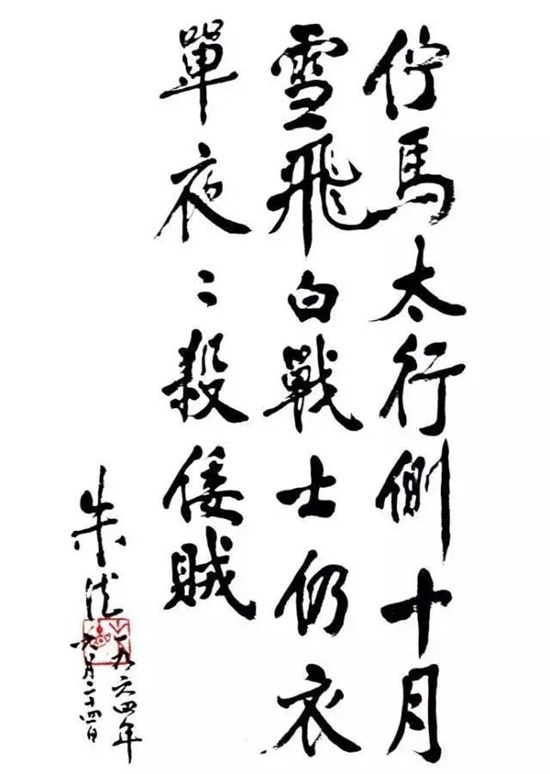 佇馬太行側十月
雪飛白戰士仍衣
單夜〻殺倭賊
朱德
一九六四年
六月二十四日